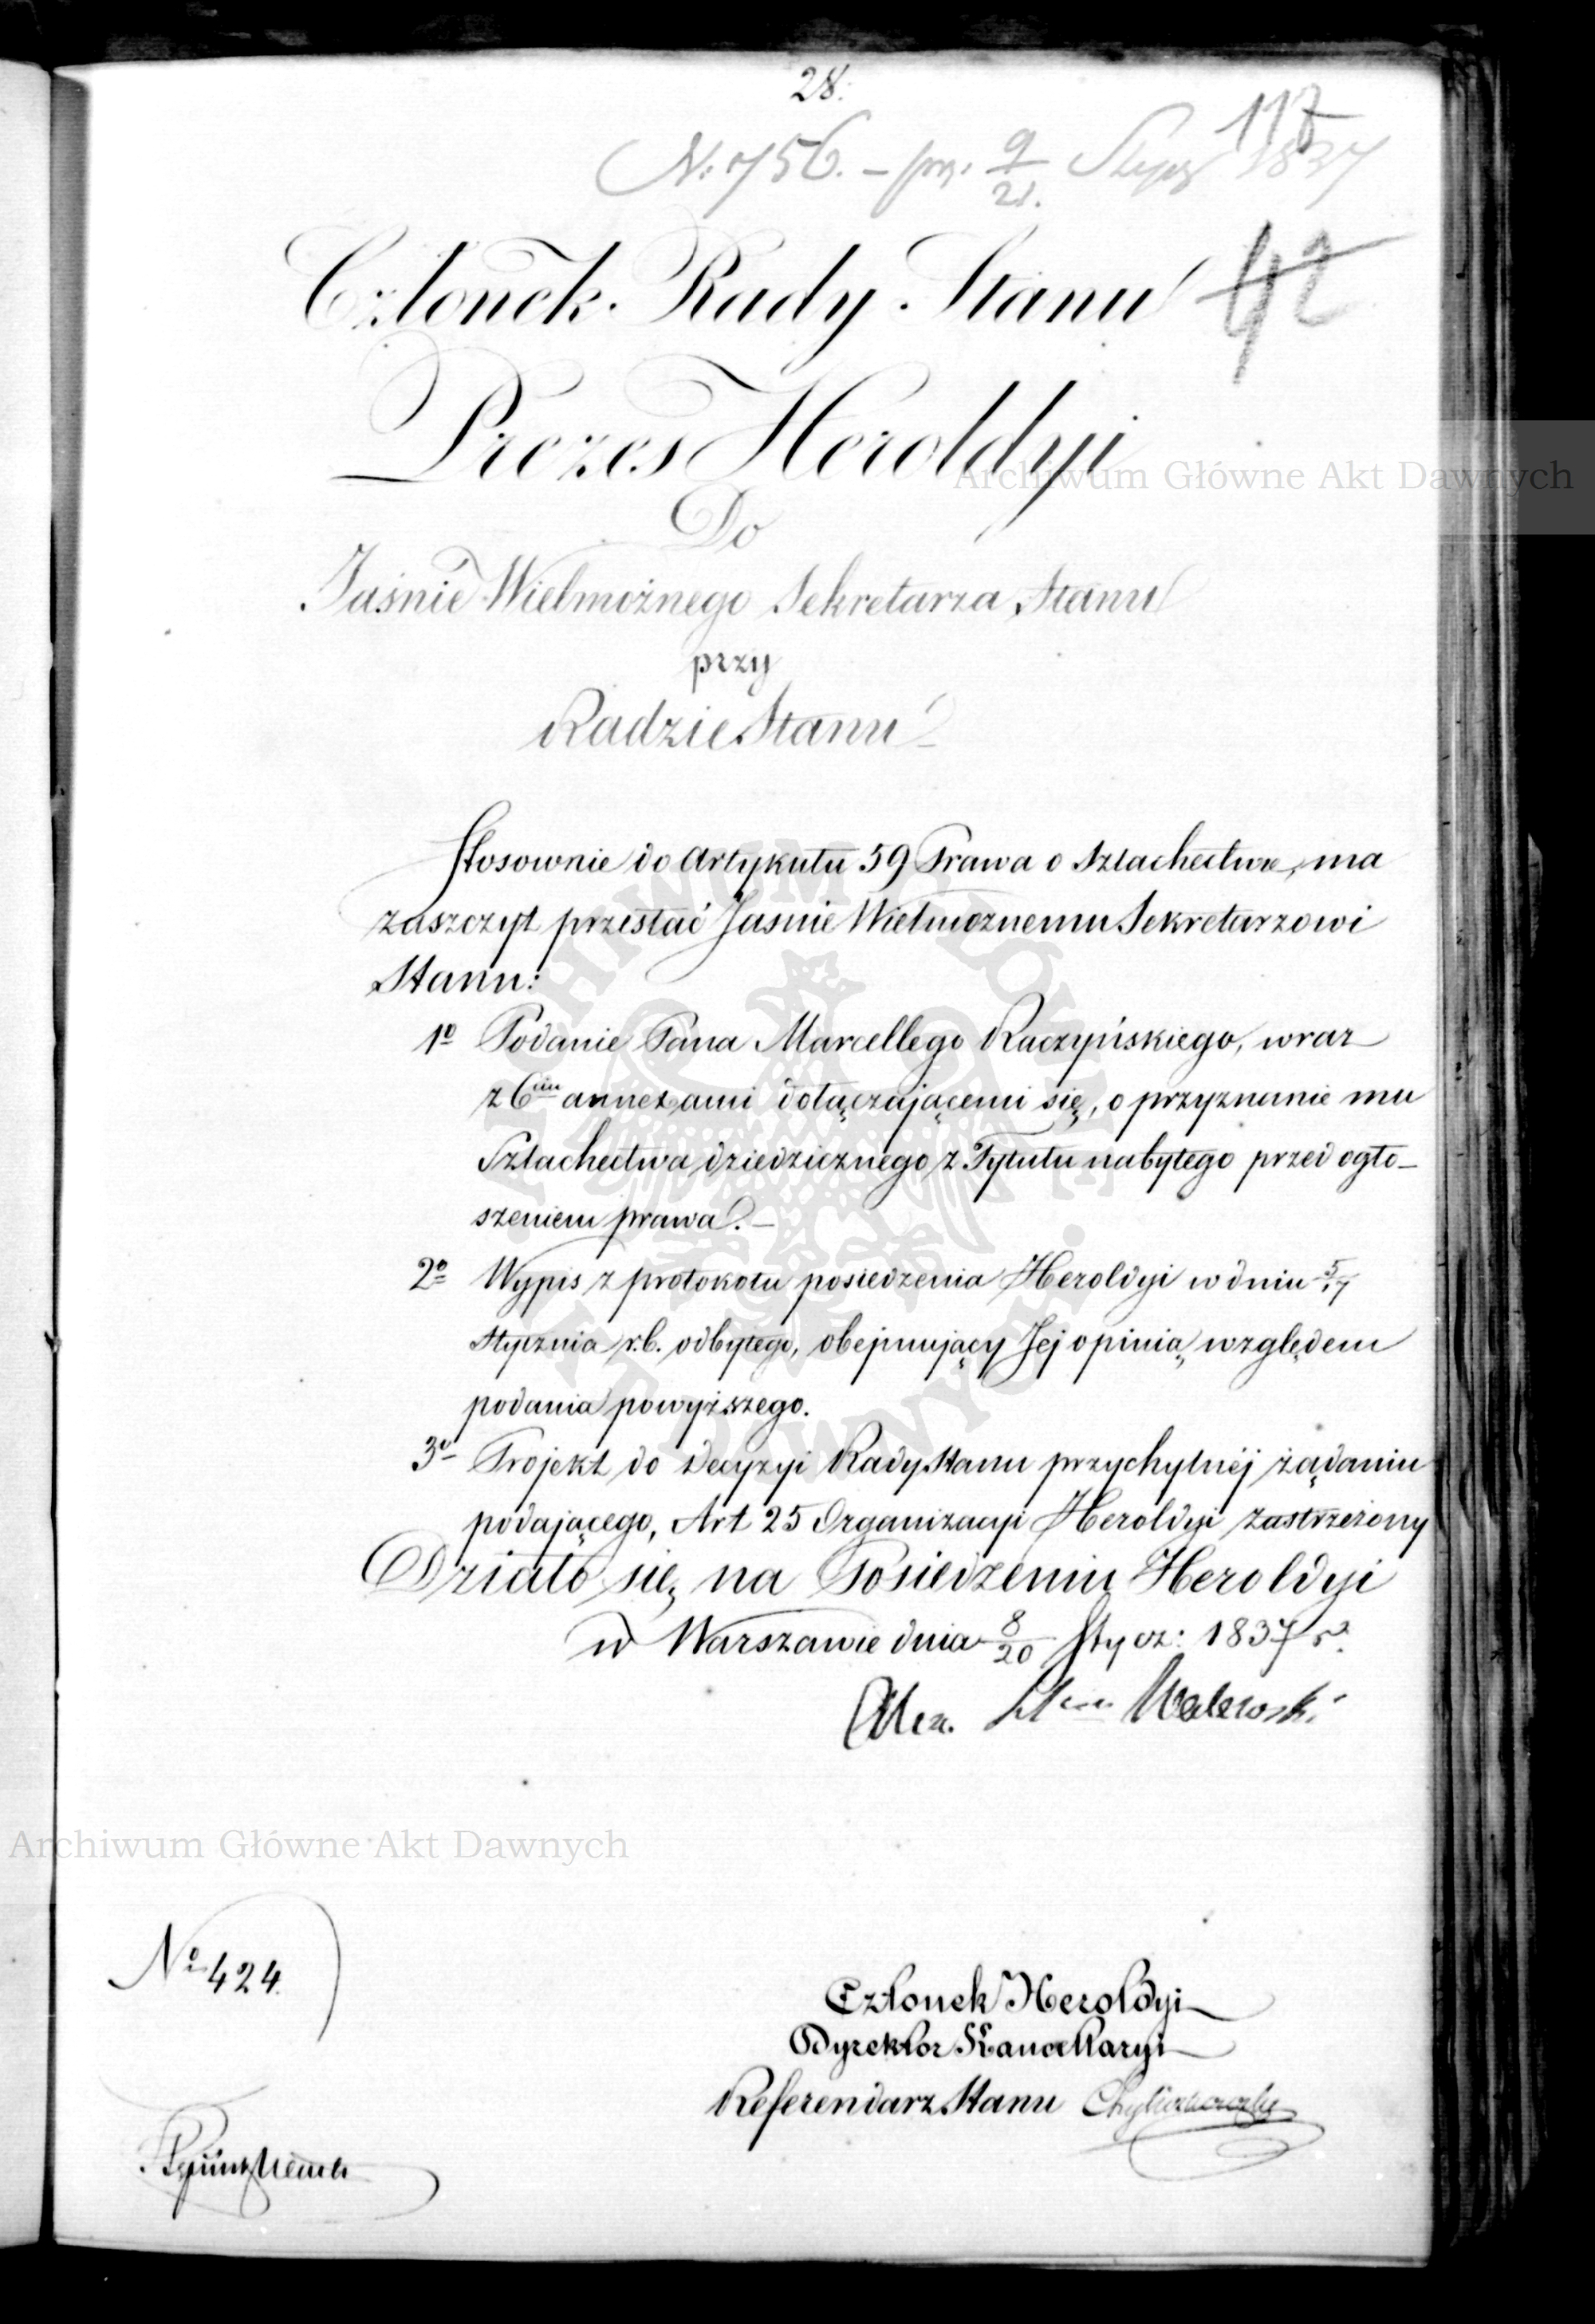 28.
117
No 756. – pr. 9/21. Stycz 1837
42
Członek Rady Stanu
Prezes Heroldyi
Do
Jaśnie Wielmożnego Sekretarza Stanu
przy
Radzie Stanu
Stosownie do Artykułu 59 Prawa o Szlachectwie, ma
zaszczyt przesłać Jaśnie Wielmożnemu Sekretarzowi
Stanu:
1º Podanie Pana Marcellego Raczyńskiego, wraz
z 6ciu annexami dołączającemi się, o przyznanie mu
Szlachectwa dziedzicznego z Tytułu nabytego przed ogło-
szeniem prawa. –
2º Wypis z protokołu posiedzenia Heroldyi w dniu 5/17
Stycznia r.b. odbytego, obejmujący Jej opinią, względem
podania powyższego.
3º Projekt do Decyzyi Rady Stanu przychylnéj żądaniu
podającego, Art 25 Organizacyi Heroldyi zastrzeżony
Działo się, na Posiedzeniu Heroldyi
w Warszawie dnia 8/20 Stycz: 1837 r.
Alex. Walewski
Nº 424.
Członek Heroldyi
Dyrektor Kancellaryi
Referendarz Stanu
Archiwum Główne Akt Dawnych
Archiwum Główne Akt Dawnych
ARCHIWUM GŁÓWNE AKT DAWNYCH